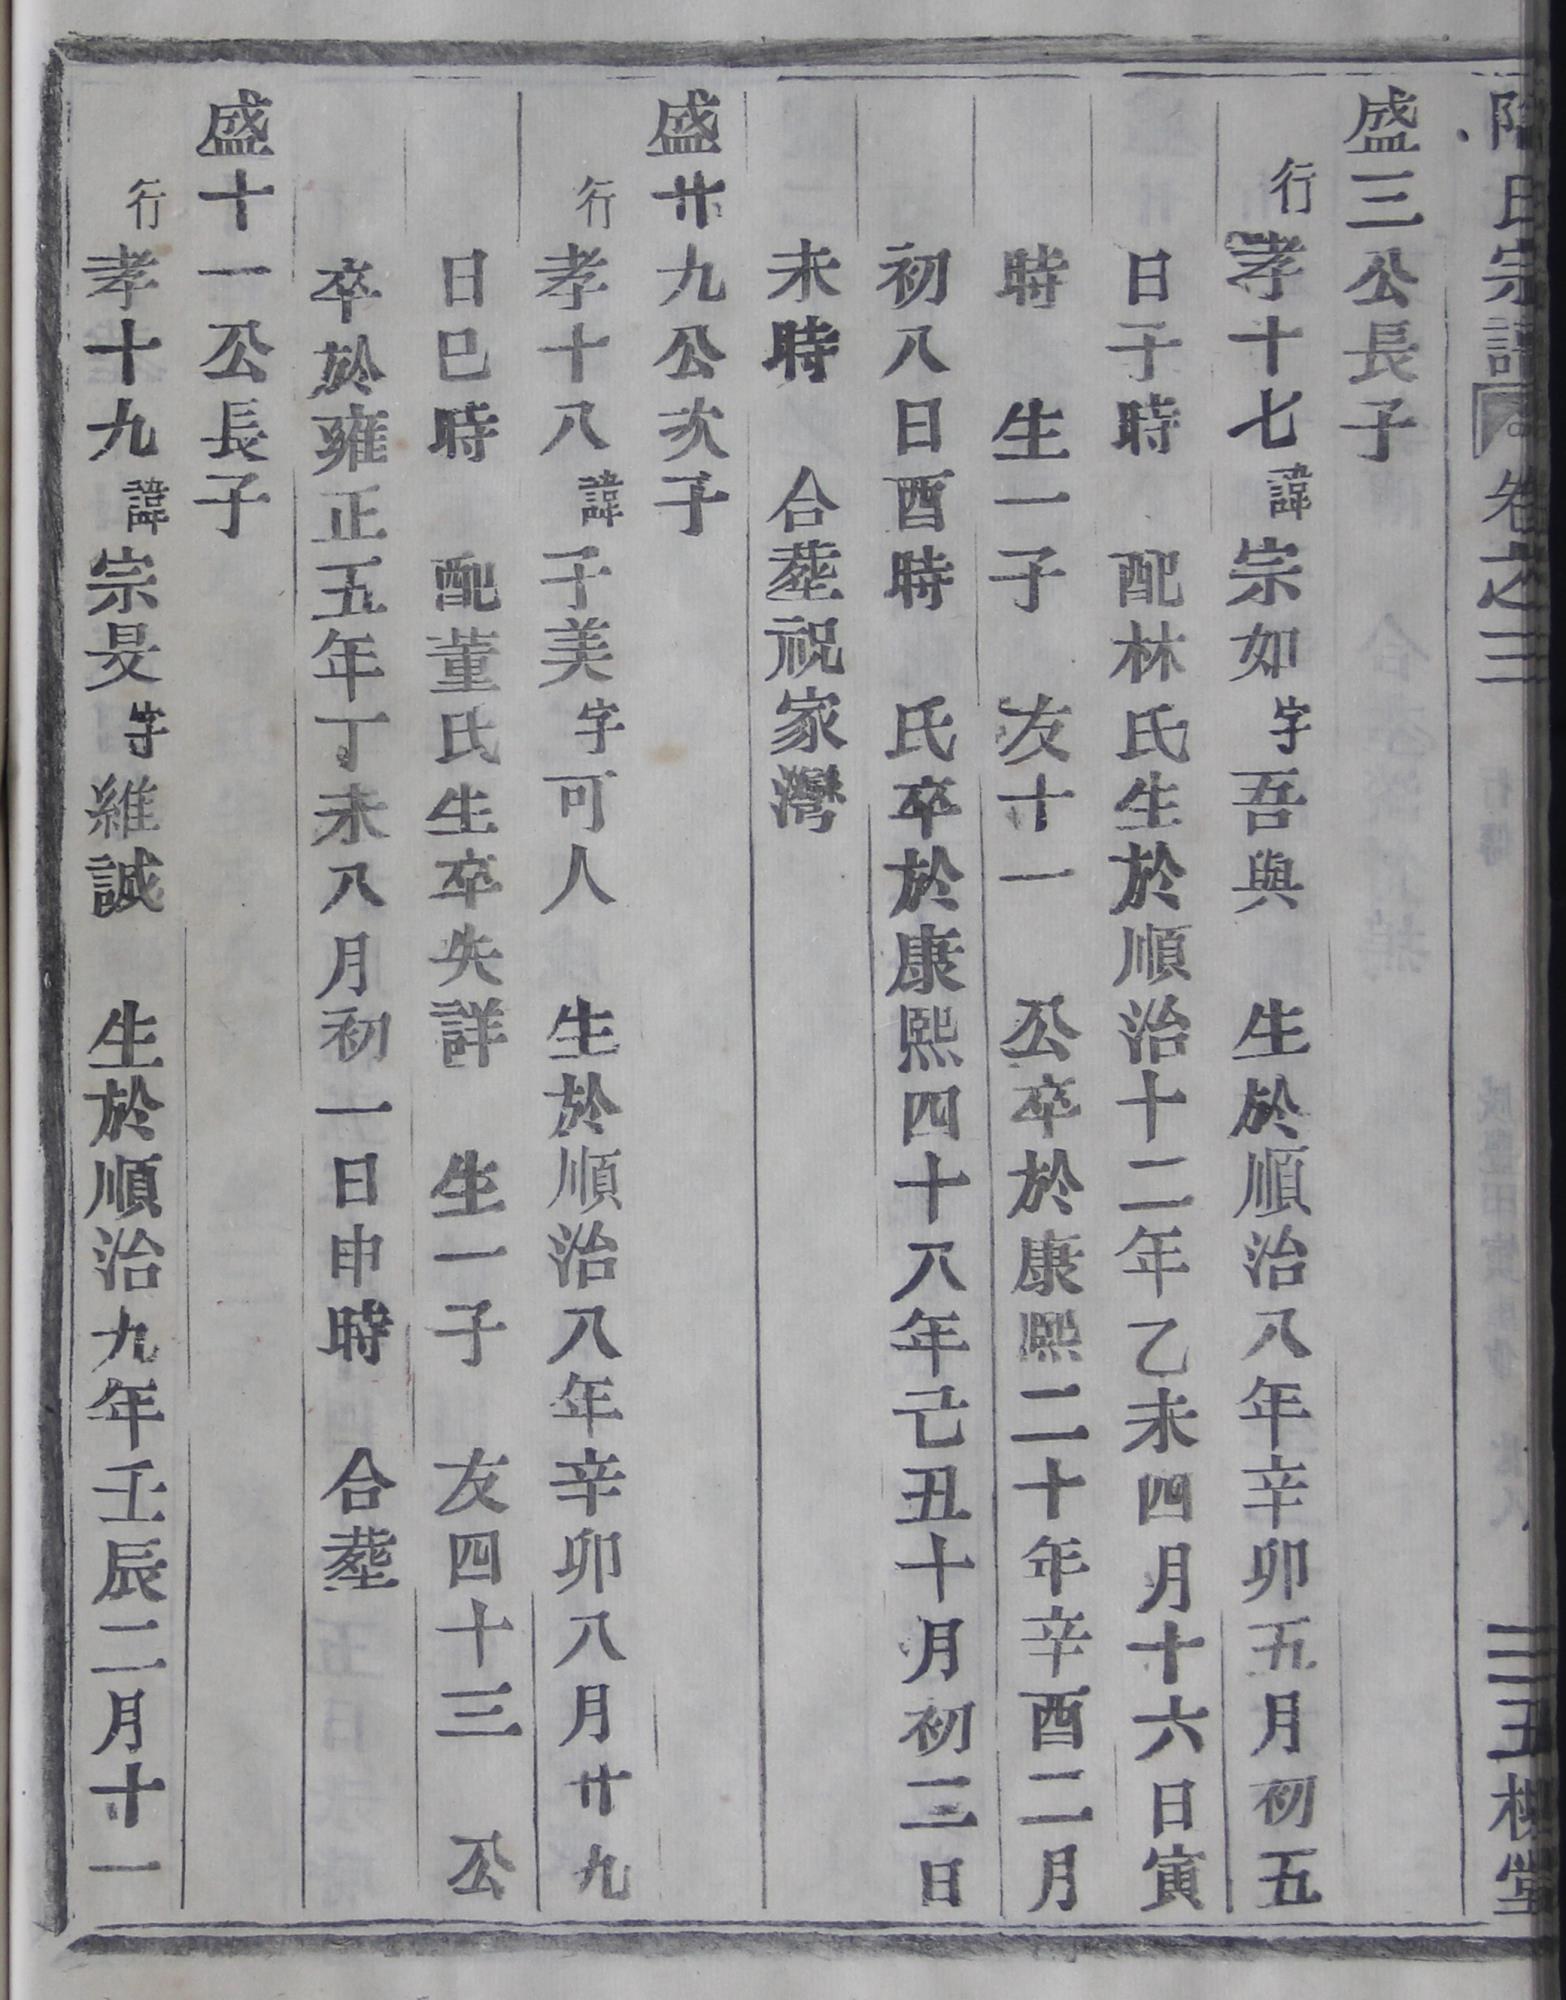 氏宗譜 卷之三 三五槐堂
盛三公長子
行孝十七諱宗如字吾與 生於順治八年辛卯五月初五
日子時 配林氏生於順治十二年乙未四月十六日寅
時 生一子 友十一 公卒於康熙二十年辛酉二月
初八日酉時 氏卒於康熙四十八年己丑十月初三日
未時 合塟祝家灣
盛廿九公次子
行孝十八諱子美字可人 生於順治八年辛卯八月廿九
日巳時 配董氏生卒失詳 生一子 友四十三 公
卒於雍正五年丁未八月初一日申時 合塟
盛十一公長子
行孝十九諱宗旻字維誠 生於順治九年壬辰二月十一